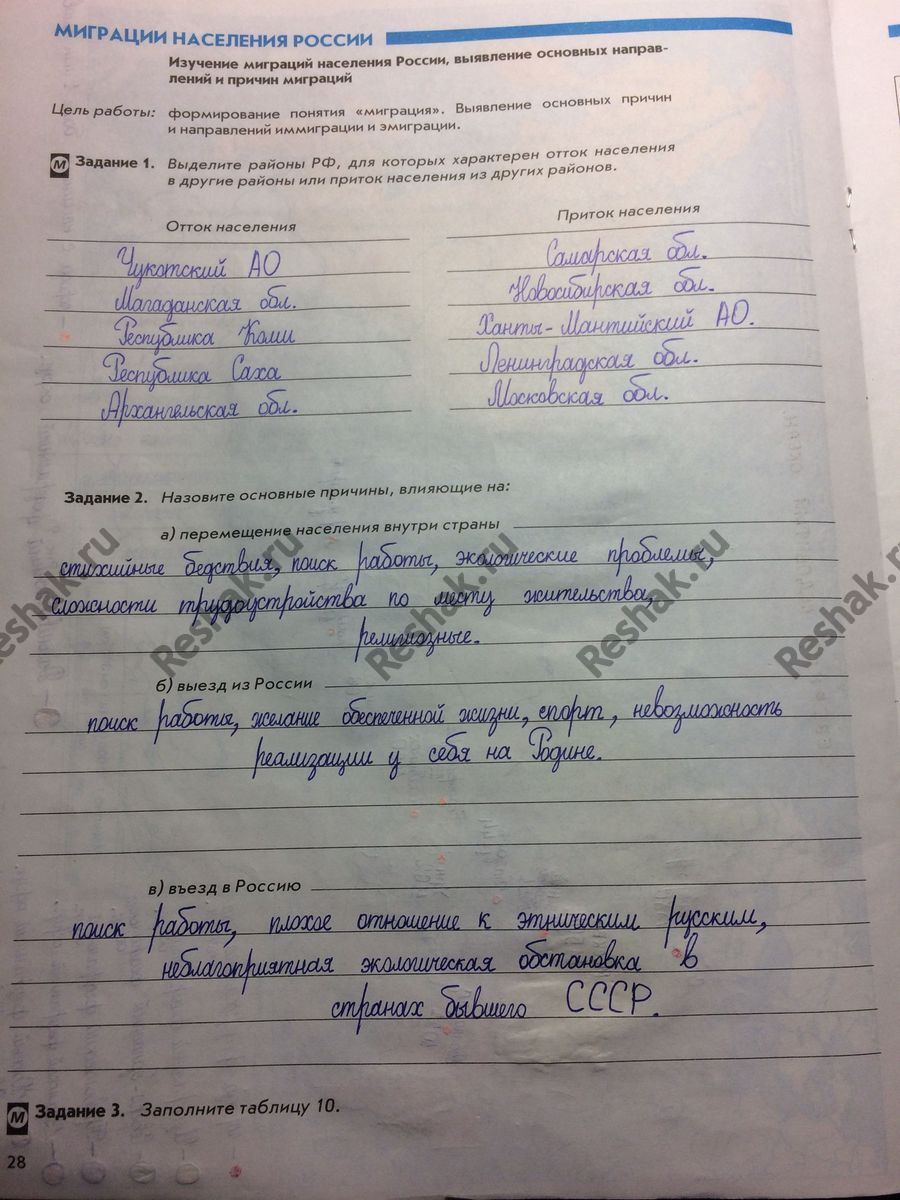 МИГРАЦИИ НАСЕЛЕНИЯ РОССИИ
Изучение миграций населения России, выявление основных направ-
лений и причин миграций
Цель работы: формирование понятия «миграция». Выявление основных причин
и направлений иммиграции и эмиграции.
М Задание 1. Выделите районы РФ, для которых характерен отток населения
в другие районы или приток населения из других районов.
Отток населения
Чукотский АО
Магаданская обл.
Республика Коми
Республика Саха
Архангельская обл.
Приток населения
Самарская обл.
Новосибирская обл.
Ханты-Мантийский АО.
Ленинградская обл.
Московская обл.
Задание 2. Назовите основные причины, влияющие на:
а) перемещение населения внутри страны
стихийные бедствия, поиск работы, экологические проблемы,
сложности трудоустройства по месту жительства,
религиозные.
б) выезд из России
поиск работы, желание обеспеченной жизни, спорт, невозможность
реализации у себя на Родине.
в) въезд в Россию
поиск работы, плохое отношение к этническим русским,
неблагоприятная экологическая обстановка в
странах бывшего СССР.
М Задание 3. Заполните таблицу 10.
28
Reshak.ru
Reshak.ru
Reshak.ru
Reshak.ru
Reshak.ru